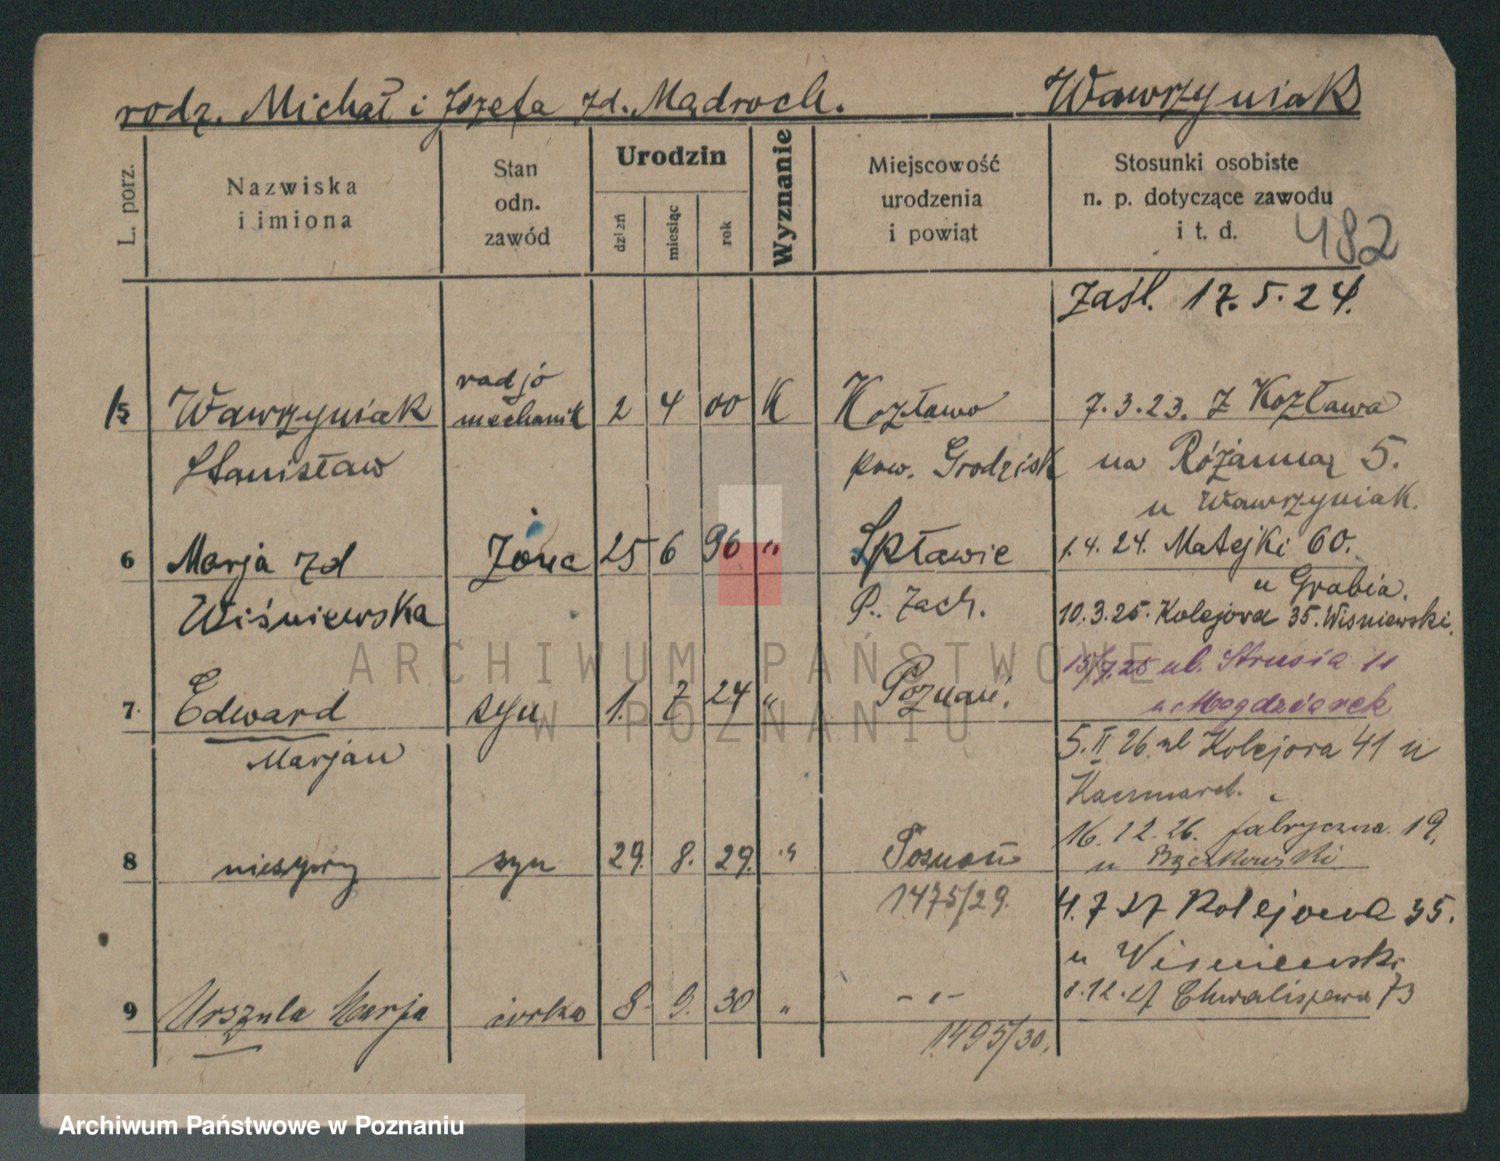 rodz. Michał i Józefa zd. Mądroch. Wawrzyniak
L. porz.
Nazwiska
i imiona
Stan
odn.
zawód
Urodzin
dzień
miesiąc
rok
Wyznanie
Miejscowość
urodzenia
i powiat
Stosunki osobiste
n. p. dotyczące zawodu
i t. d.
482
Zaśl. 17.5.24.
radjo
1/5 Wawrzyniak mechanik 2 4 00 K Kozławo 7.3.23. z Kozława
Stanisław pow. Grodzisk na Różanną 5.
u Wawrzyniak.
6 Marja zd żona 25 6 96 " Spławie 1.4.24. Matejki 60.
u Grabia.
Wiśniewska P. Zach. 10.3.25. Kolejowa 35. Wiśniewski.
15/7.25 ul. Strusia 11
7. Edward syn 1. 7 24 " Poznań. u Magdziarek
Marjan 5.II 26. ul Kolejowa 41 u
Kaczmarek.
16.12.26. fabryczna 19.
8 syn 29. 8. 29. " Poznań u
1475/29. 4.7 27 Kolejowa 35.
u Wisniewski
9 Urszula Marja córka 8. 9. 30 " - " - 1.12.27 Chwaliszewo 73
1495/30.
ARCHIWUM PAŃSTWOWE
W POZNANIU
Archiwum Państwowe w Poznaniu